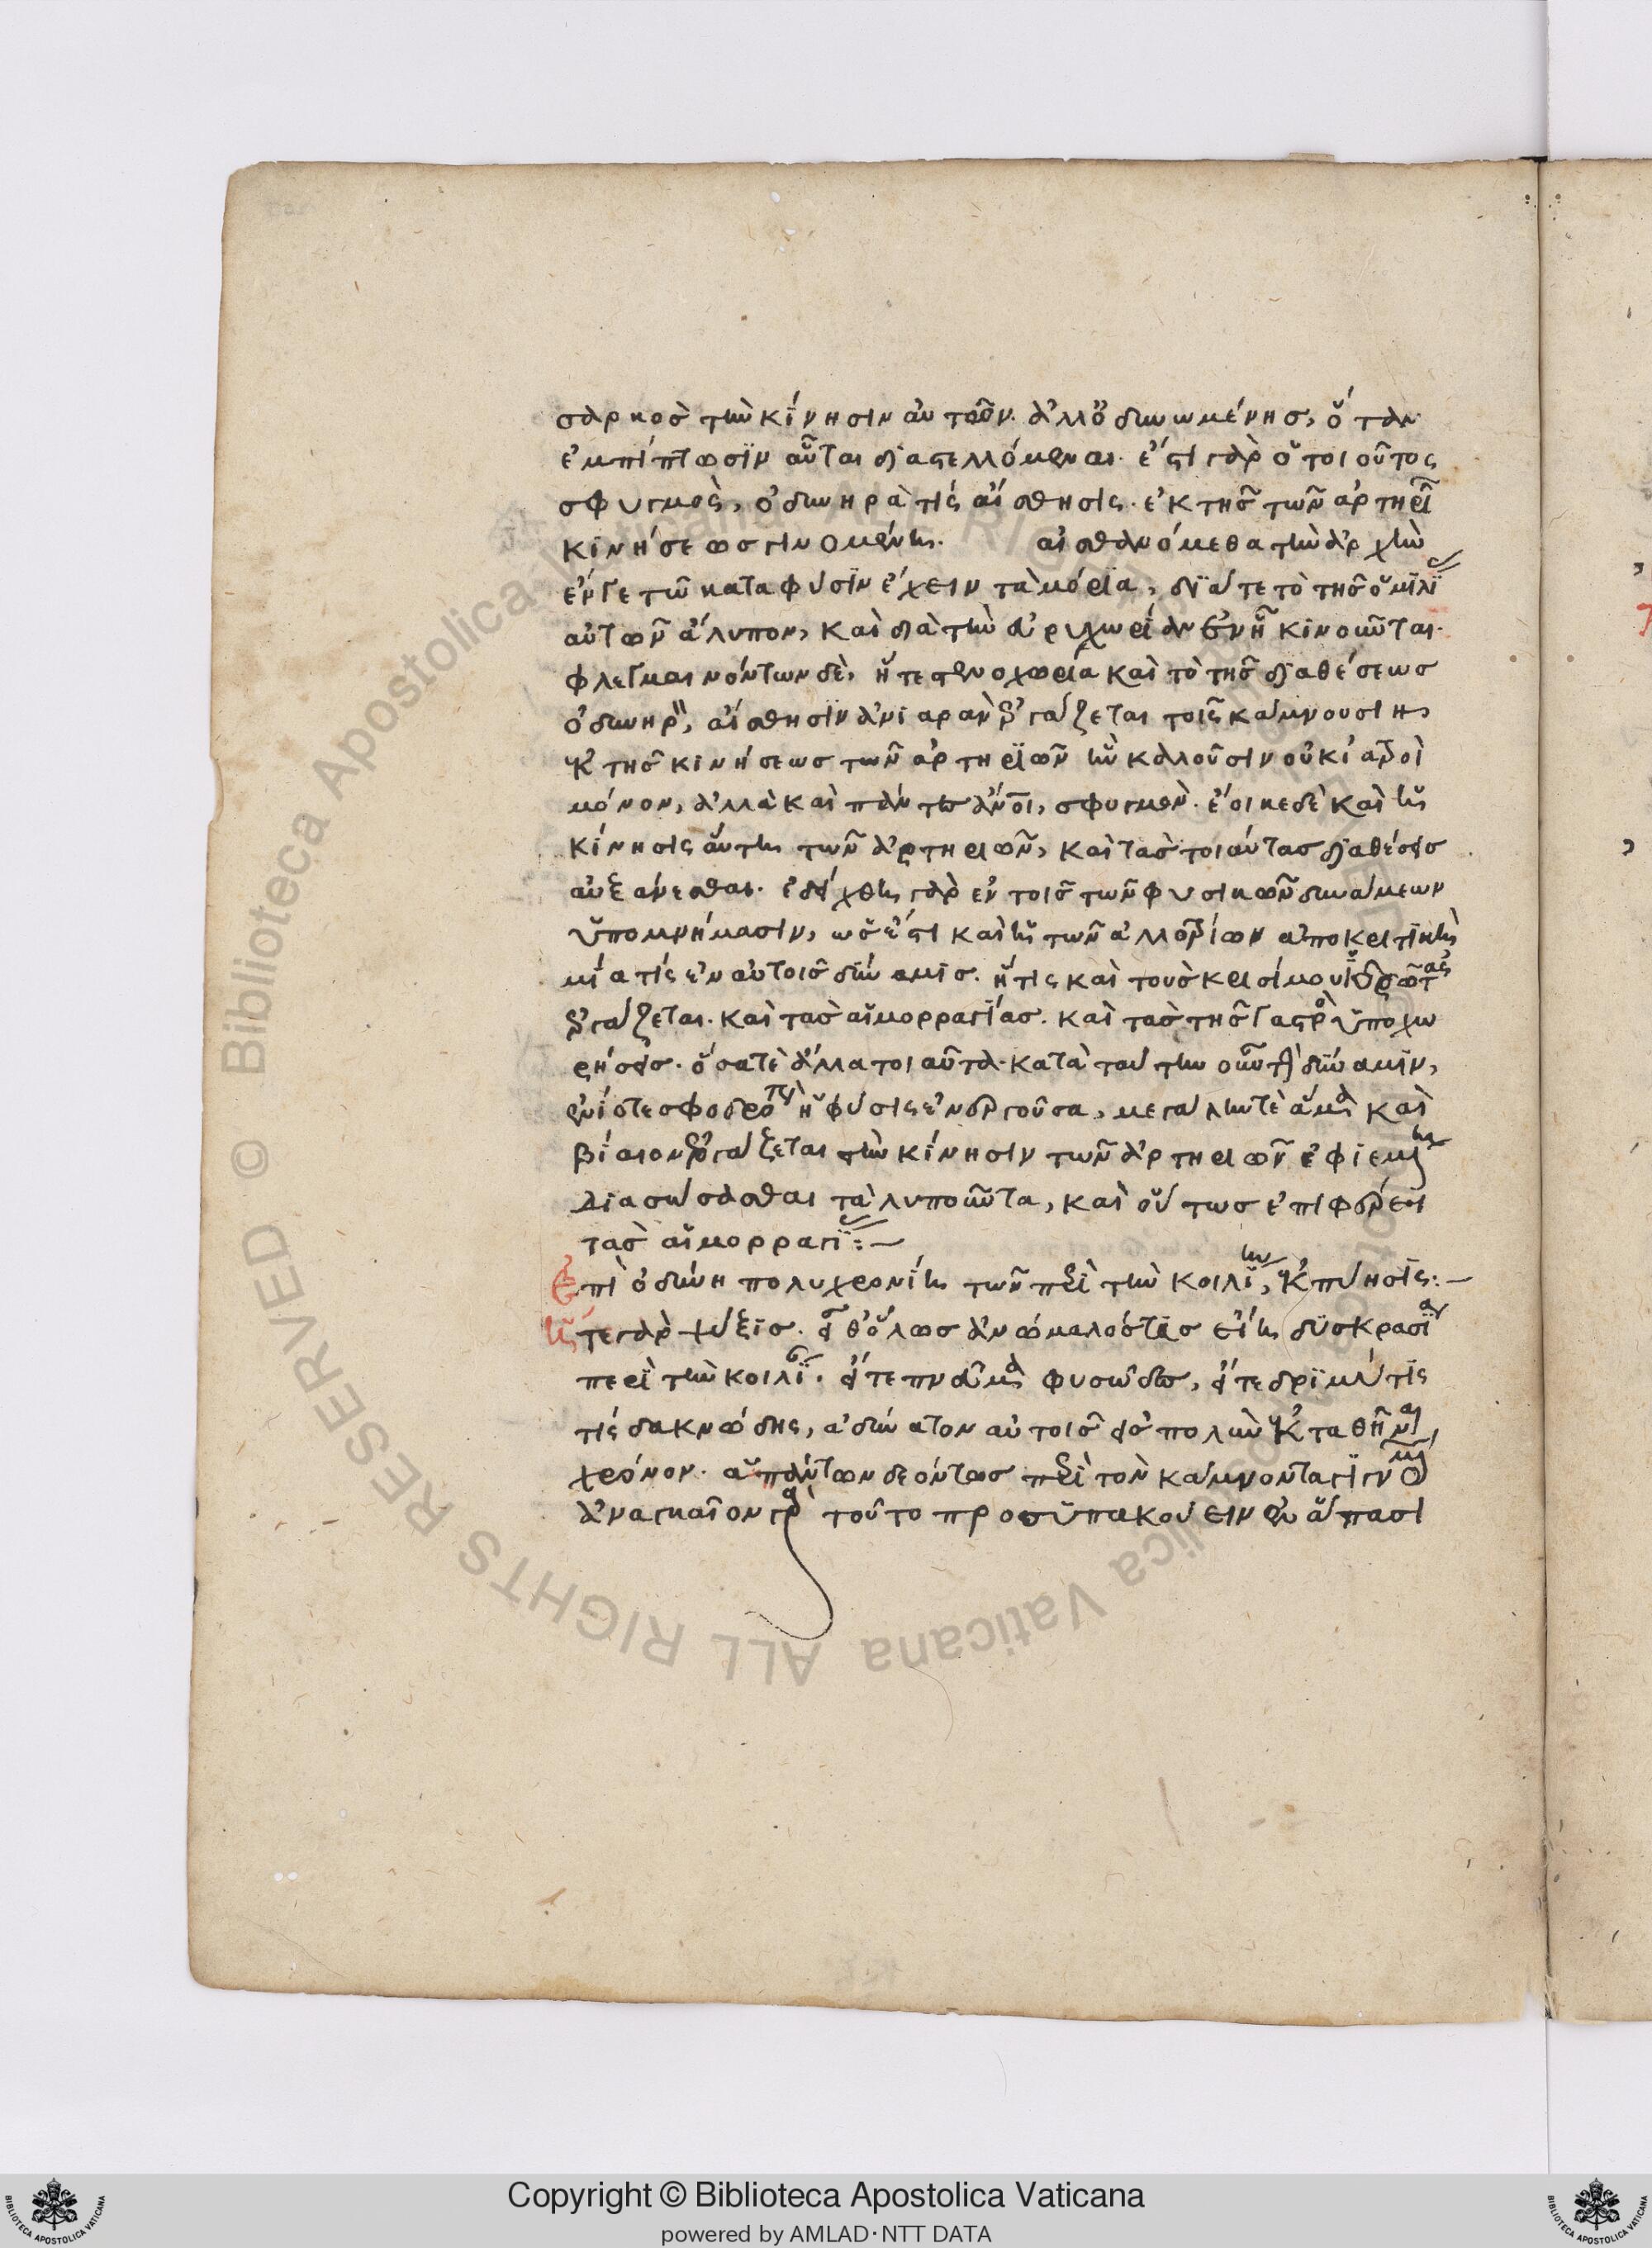 σαρκὸσ τὴν κίνησιν αὐτῶν. ἀλλ' ὀδυνωμένησ, ὅταν
ἐμπίπτωσϊν αὗται διαστελλόμεναι. ἔστι γὰρ ὁ τοιοῦτος
σφυγμὸς, ὀδυνηρὰ τίς αἴσθησις. ἐκ τῆσ τῶν ἀρτηρϊ
κινήσεωσ γινομένης. αἰσθανόμεθα τὴν ἀρχὴν
ἔν γε τῶ κατα φύσϊν ἔχειν τὰ μόρϊα, δϊά τε τὸ τῆσ ὁμϊλϊ
αὐτῶν ἄλυπον, καὶ διὰ τὴν εὐρυχωρίαν ἐν ἧ κινοῦνται.
φλεγμαινόντων δὲ, ἥ τε στενοχωρία καὶ τὸ τῆσ διαθέσεωσ
ὀδυνηρὸν, αἴσθησϊν ἀνιαρὰν ἐργάζεται τοῖς κάμνουσιν
ἐκ τῆσ κινήσεωσ τῶν ἀρτηρϊῶν ἣν καλοῦσιν οὐκ ἰατροὶ
μόνον, ἀλλὰ καὶ πάντες ἄνοι, σφυγμὸν. ἔοικε δὲ καὶ ἡ
κίνησις αὕτη τῶν ἀρτηριῶν, κατὰ τὰσ τοιαύτασ διαθέσεισ
αὐξάνεσθαι. ἐδείχθη γὰρ ἐν τοῖσ τῶν φυσικῶν δυνάμεων
ὑπομνήμασιν, ὡσ ἔστι καὶ ἡ τῶν ἀλλοτρίων ἀποκριτϊκὴ
μία τίς ἐν αὐτοῖσ δύναμϊσ. ἥτις καὶ τοὺσ κρισίμουσ ἱδρῶτας
ἐργάζεται. καὶ τὰσ αἱμορραγίασ. καὶ τὰσ τῆσ γαστρὸς ὑποχω
ρήσεισ. ὅσα τὲ ἄλλα τοιαῦτα. κατὰ ταύτην οὖν τὴν δύναμϊν,
ἐνίοτε σφοδρότερον ἡ φύσις ἐνεργοῦσα, μεγάλην τὲ ἅμα καὶ
βίαιον ἐργάζεται τὴν κίνησιν τῶν ἀρτηριῶν ἐφιεμένη
διασώσασθαι τὰ λυποῦντα, καὶ οὕτωσ ἐπιφέρει
τὰσ αἱμορραγϊ:—
Ἐπὶ ὀδύνη πολυχρονίη τῶν περὶ τὴν κοιλϊην, ἐκπύησις:—
Ἥτε γὰρ ψύξϊσ. εἴθ' ὅλωσ ἀνώμαλοσ τϊσ εἴη δϋσκρασϊα
περὶ τὴν κοιλϊ. εἴτε πνεῦμα φυσῶδες, εἴτε δρϊμύτϊς
τίς δακνώδης, ἀδύνατον αὐτοῖσ εἰσ πολὺν ἐκταθῆναι
χρόνον. ἁπάντων δεόντωσ περὶ τὸν κάμνοντα γϊγνομένων
ἀναγκαῖον γὰρ τοῦτο προσϋπακούειν ἐν ἅπασι